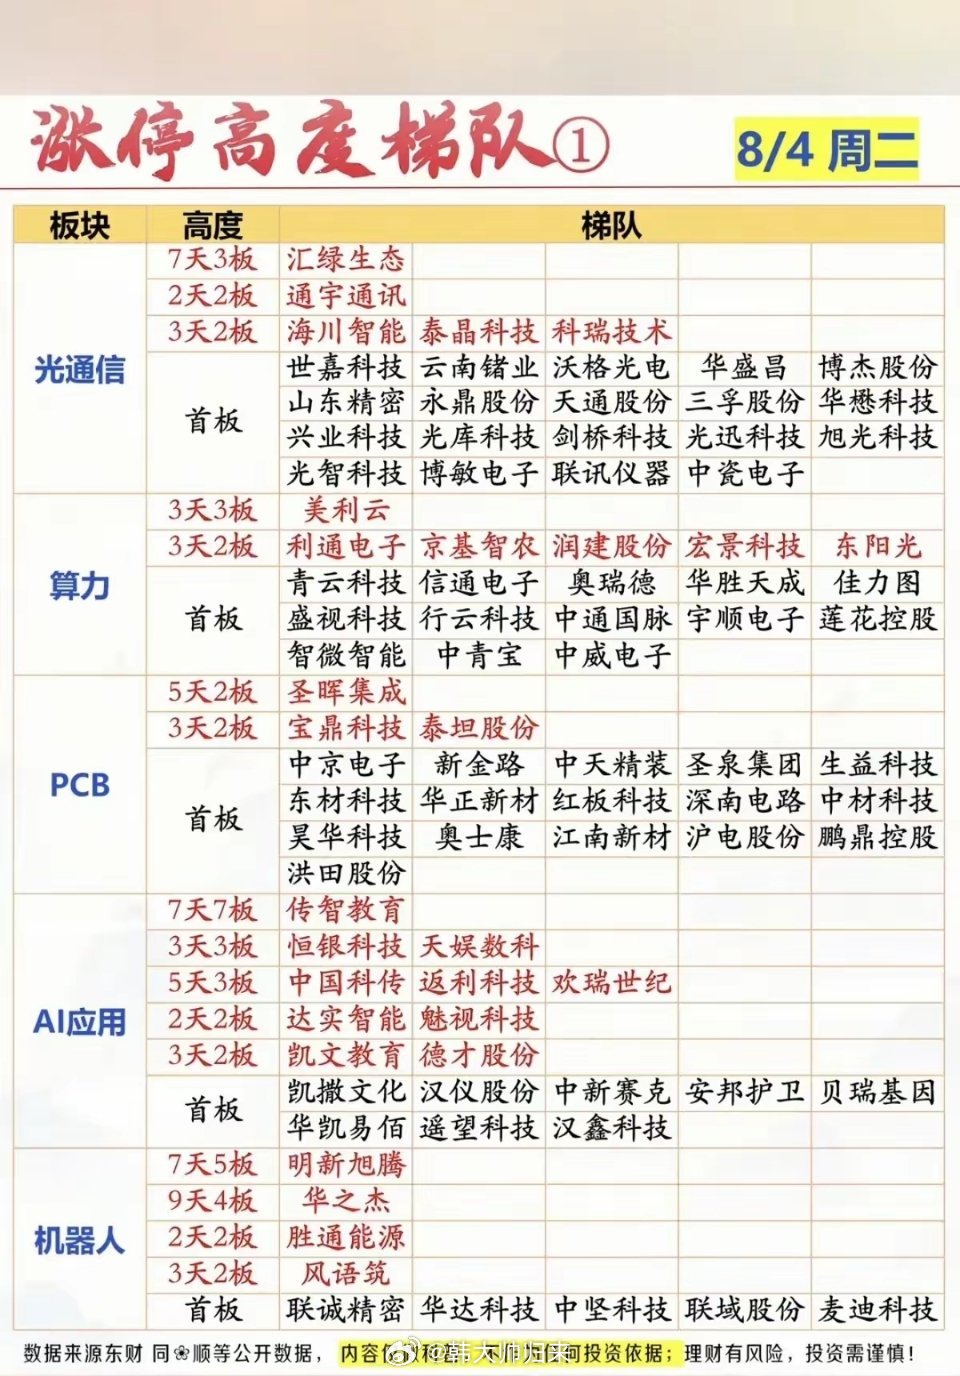 涨停高度梯队①
8/4 周二
板块 高度 梯队
光通信
7天3板 汇绿生态
2天2板 通宇通讯
3天2板 海川智能 泰晶科技 科瑞技术
首板
世嘉科技 云南锗业 沃格光电 华盛昌 博杰股份
山东精密 永鼎股份 天通股份 三孚股份 华懋科技
兴业科技 光库科技 剑桥科技 光迅科技 旭光科技
光智科技 博敏电子 联讯仪器 中瓷电子
算力
3天3板 美利云
3天2板 利通电子 京基智农 润建股份 宏景科技 东阳光
首板
青云科技 信通电子 奥瑞德 华胜天成 佳力图
盛视科技 行云科技 中通国脉 宇顺电子 莲花控股
智微智能 中青宝 中威电子
PCB
5天2板 圣晖集成
3天2板 宝鼎科技 泰坦股份
首板
中京电子 新金路 中天精装 圣泉集团 生益科技
东材科技 华正新材 红板科技 深南电路 中材科技
昊华科技 奥士康 江南新材 沪电股份 鹏鼎控股
洪田股份
AI应用
7天7板 传智教育
3天3板 恒银科技 天娱数科
5天3板 中国科传 返利科技 欢瑞世纪
2天2板 达实智能 魅视科技
3天2板 凯文教育 德才股份
首板
凯撒文化 汉仪股份 中新赛克 安邦护卫 贝瑞基因
华凯易佰 遥望科技 汉鑫科技
机器人
7天5板 明新旭腾
9天4板 华之杰
2天2板 胜通能源
3天2板 风语筑
首板 联诚精密 华达科技 中坚科技 联域股份 麦迪科技
数据来源东财 同❀顺等公开数据，内容仅 不 何投资依据；理财有风险，投资需谨慎！
@韩大师归来